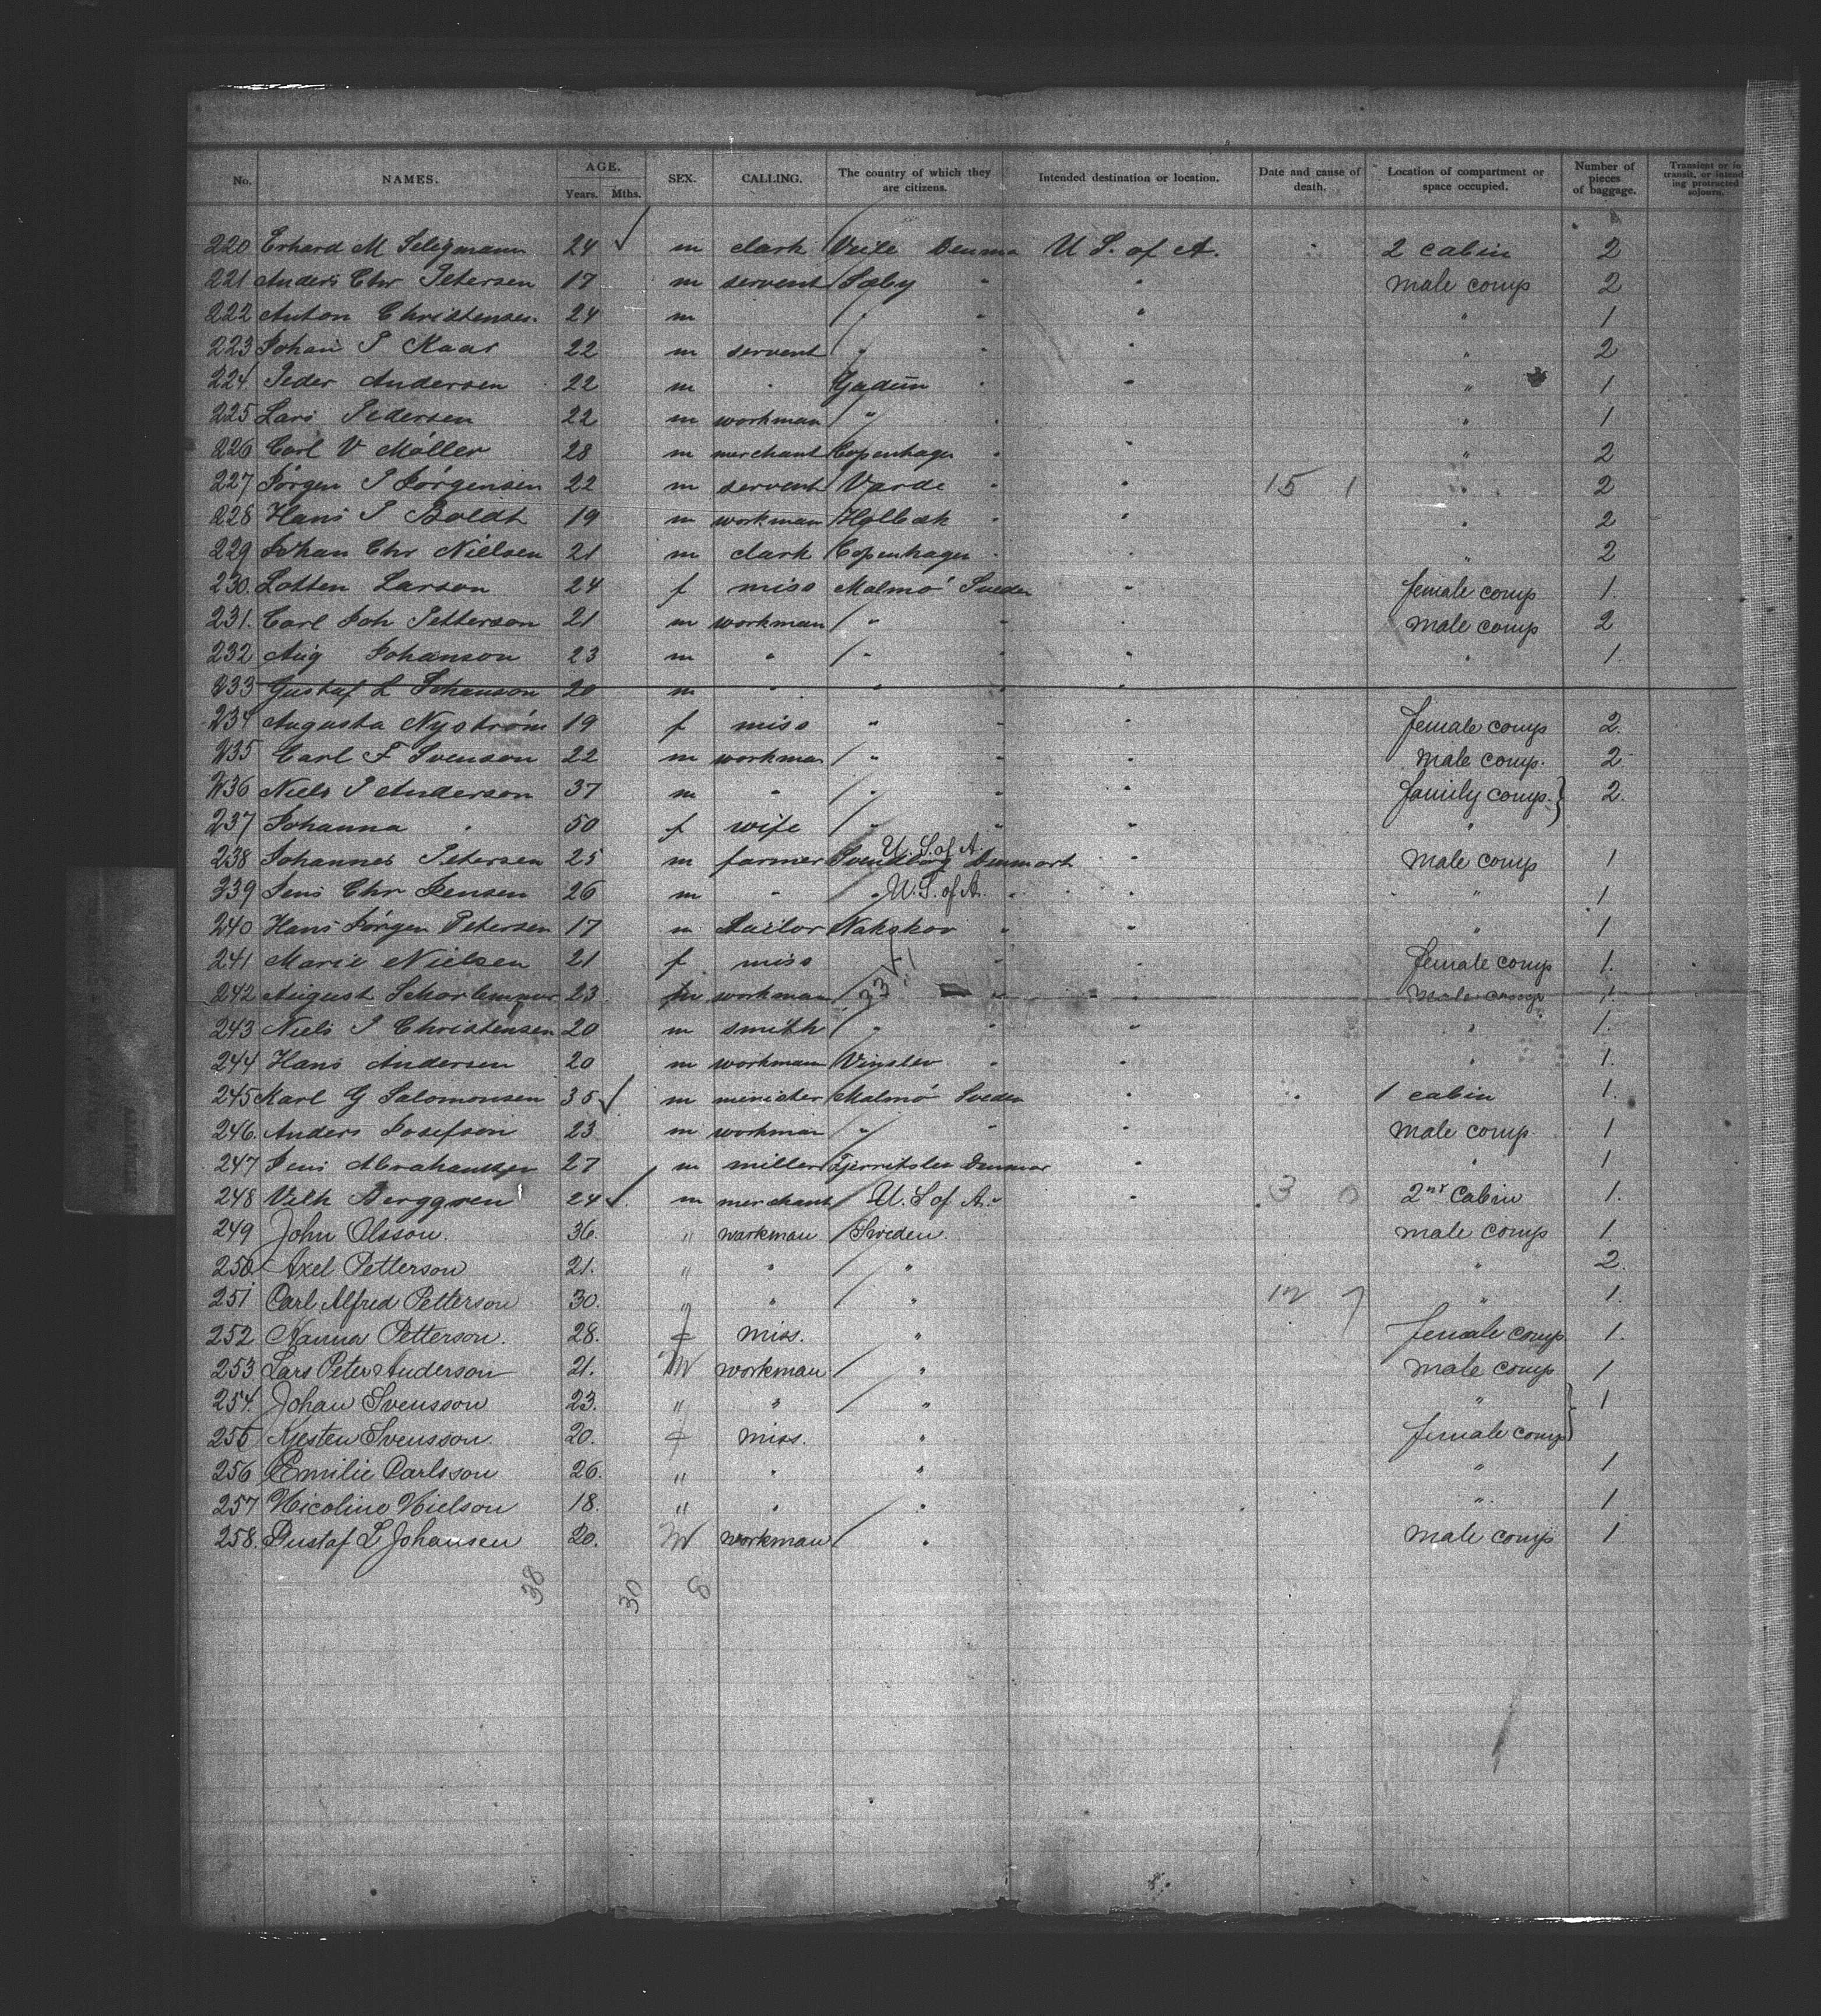 No. NAMES. AGE. Years. Mths. SEX. CALLING. The country of which they are citizens. Intended destination or location. Date and cause of death. Location of compartment or space occupied. Number of pieces of baggage. Transient or in transit, or intend ing protracted sojourn.
220 Erhard M Seligmann 24 ✓ m clark Veile Denma U S. of A. 2 cabin 2
221 Anders Chr Petersen 17 m servent Sæby " " male comp 2
222 Anton Christensen 24 m " " " " 1
223 Johan P Kaas 22 m servent " " " " 2
224 Peder Andersen 22 m " " " " 1
225 Lars Pedersen 22 m workman " " " 1
226 Carl V Möller 28 m merchant Copenhagen " " " 2
227 Jörgen P Jörgensen 22 m servent Varde " " 15 1 " 2
228 Hans P Boldt 19 m workman Holbæk " " " 2
229 Johan Chr Nielsen 21 m clark Copenhagen " " " 2
230. Lotten Larson 24 f miss Malmö Sveden " female comp 1.
231. Carl Joh Petterson 21 m workman " " " male comp 2
232 Aug Johanson 23 m " " " " " 1.
233 Gustaf L Johanson 20 m " " " "
234 Augusta Nyström 19 f miss " " " female comp 2.
235 Carl F Svenson 22 m workman " " " male comp. 2
236 Niels P Anderson 37 m " " " " family comp. } 2.
237 Johanna " 50 f wife " " " "
238 Johannes Petersen 25 m farmer Svendborg Denmark U. S. of A " male comp 1
239 Jens Chr Jensen 26 m " " U. S. of A. " " " 1
240 Hans Jörgen Petersen 17 m tailor Nakskov " " " 1
241 Marie Nielsen 21 f miss " female comp 1.
242 August 23 m workman 33 " " male comp 1.
243 Niels P Christensen 20 m smith " " " " 1.
244 Hans Andersen 20 m workman Vinslev " " " 1.
245 Karl G Salomonsen 35 ✓ m minister Malmö Sveden " 1 cabin 1.
246. Anders Josefson 23 m workman " " " male comp. 1
247 Jens 27 m miller Denmar " " 1
248 Vilh Berggren 24 ✓ m merchant U. S of A. " " 3 0 2nd Cabin 1.
249 John Olsson. 36. " workman Sweden. male comp 1.
250 Axel Petterson 21. " " " " 2.
251 Carl Alfred Petterson 30. " " " 12 7 " 1.
252 Nanna Petterson. 28. f miss. " female comp. 1.
253 Lars Peter Anderson 21. m workman " male comp 1
254. Johan Svensson 23. " " " " } 1
255 Kjesten Svensson. 20. f miss. " female comp
256 Emilie Carlsson 26. " " " " 1
257 Nicoline Nielson 18. " " " " 1
258. Gustaf L Johansen 20. m workman " male comp 1
38 30 8